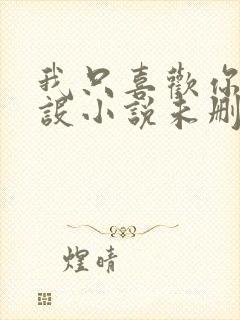 我只喜歡你
設小說未刪
煌晴